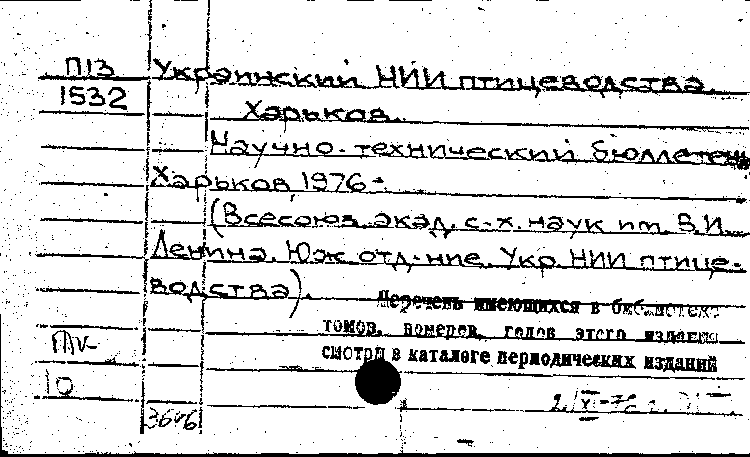 П13 Украинский НИИ птицеводства.
1532 Харьков.
Научно-технический бюллетень
Харьков, 1976-.
(Всесоюз. экад. с-х. наук им. В.И.
Ленина. Юж. отд-ние. Укр. НИИ птице-
водства).
Перечень имеющихся в библиотеке
томов, номеров, годов этого издания
смотри в каталоге периодических изданий
10